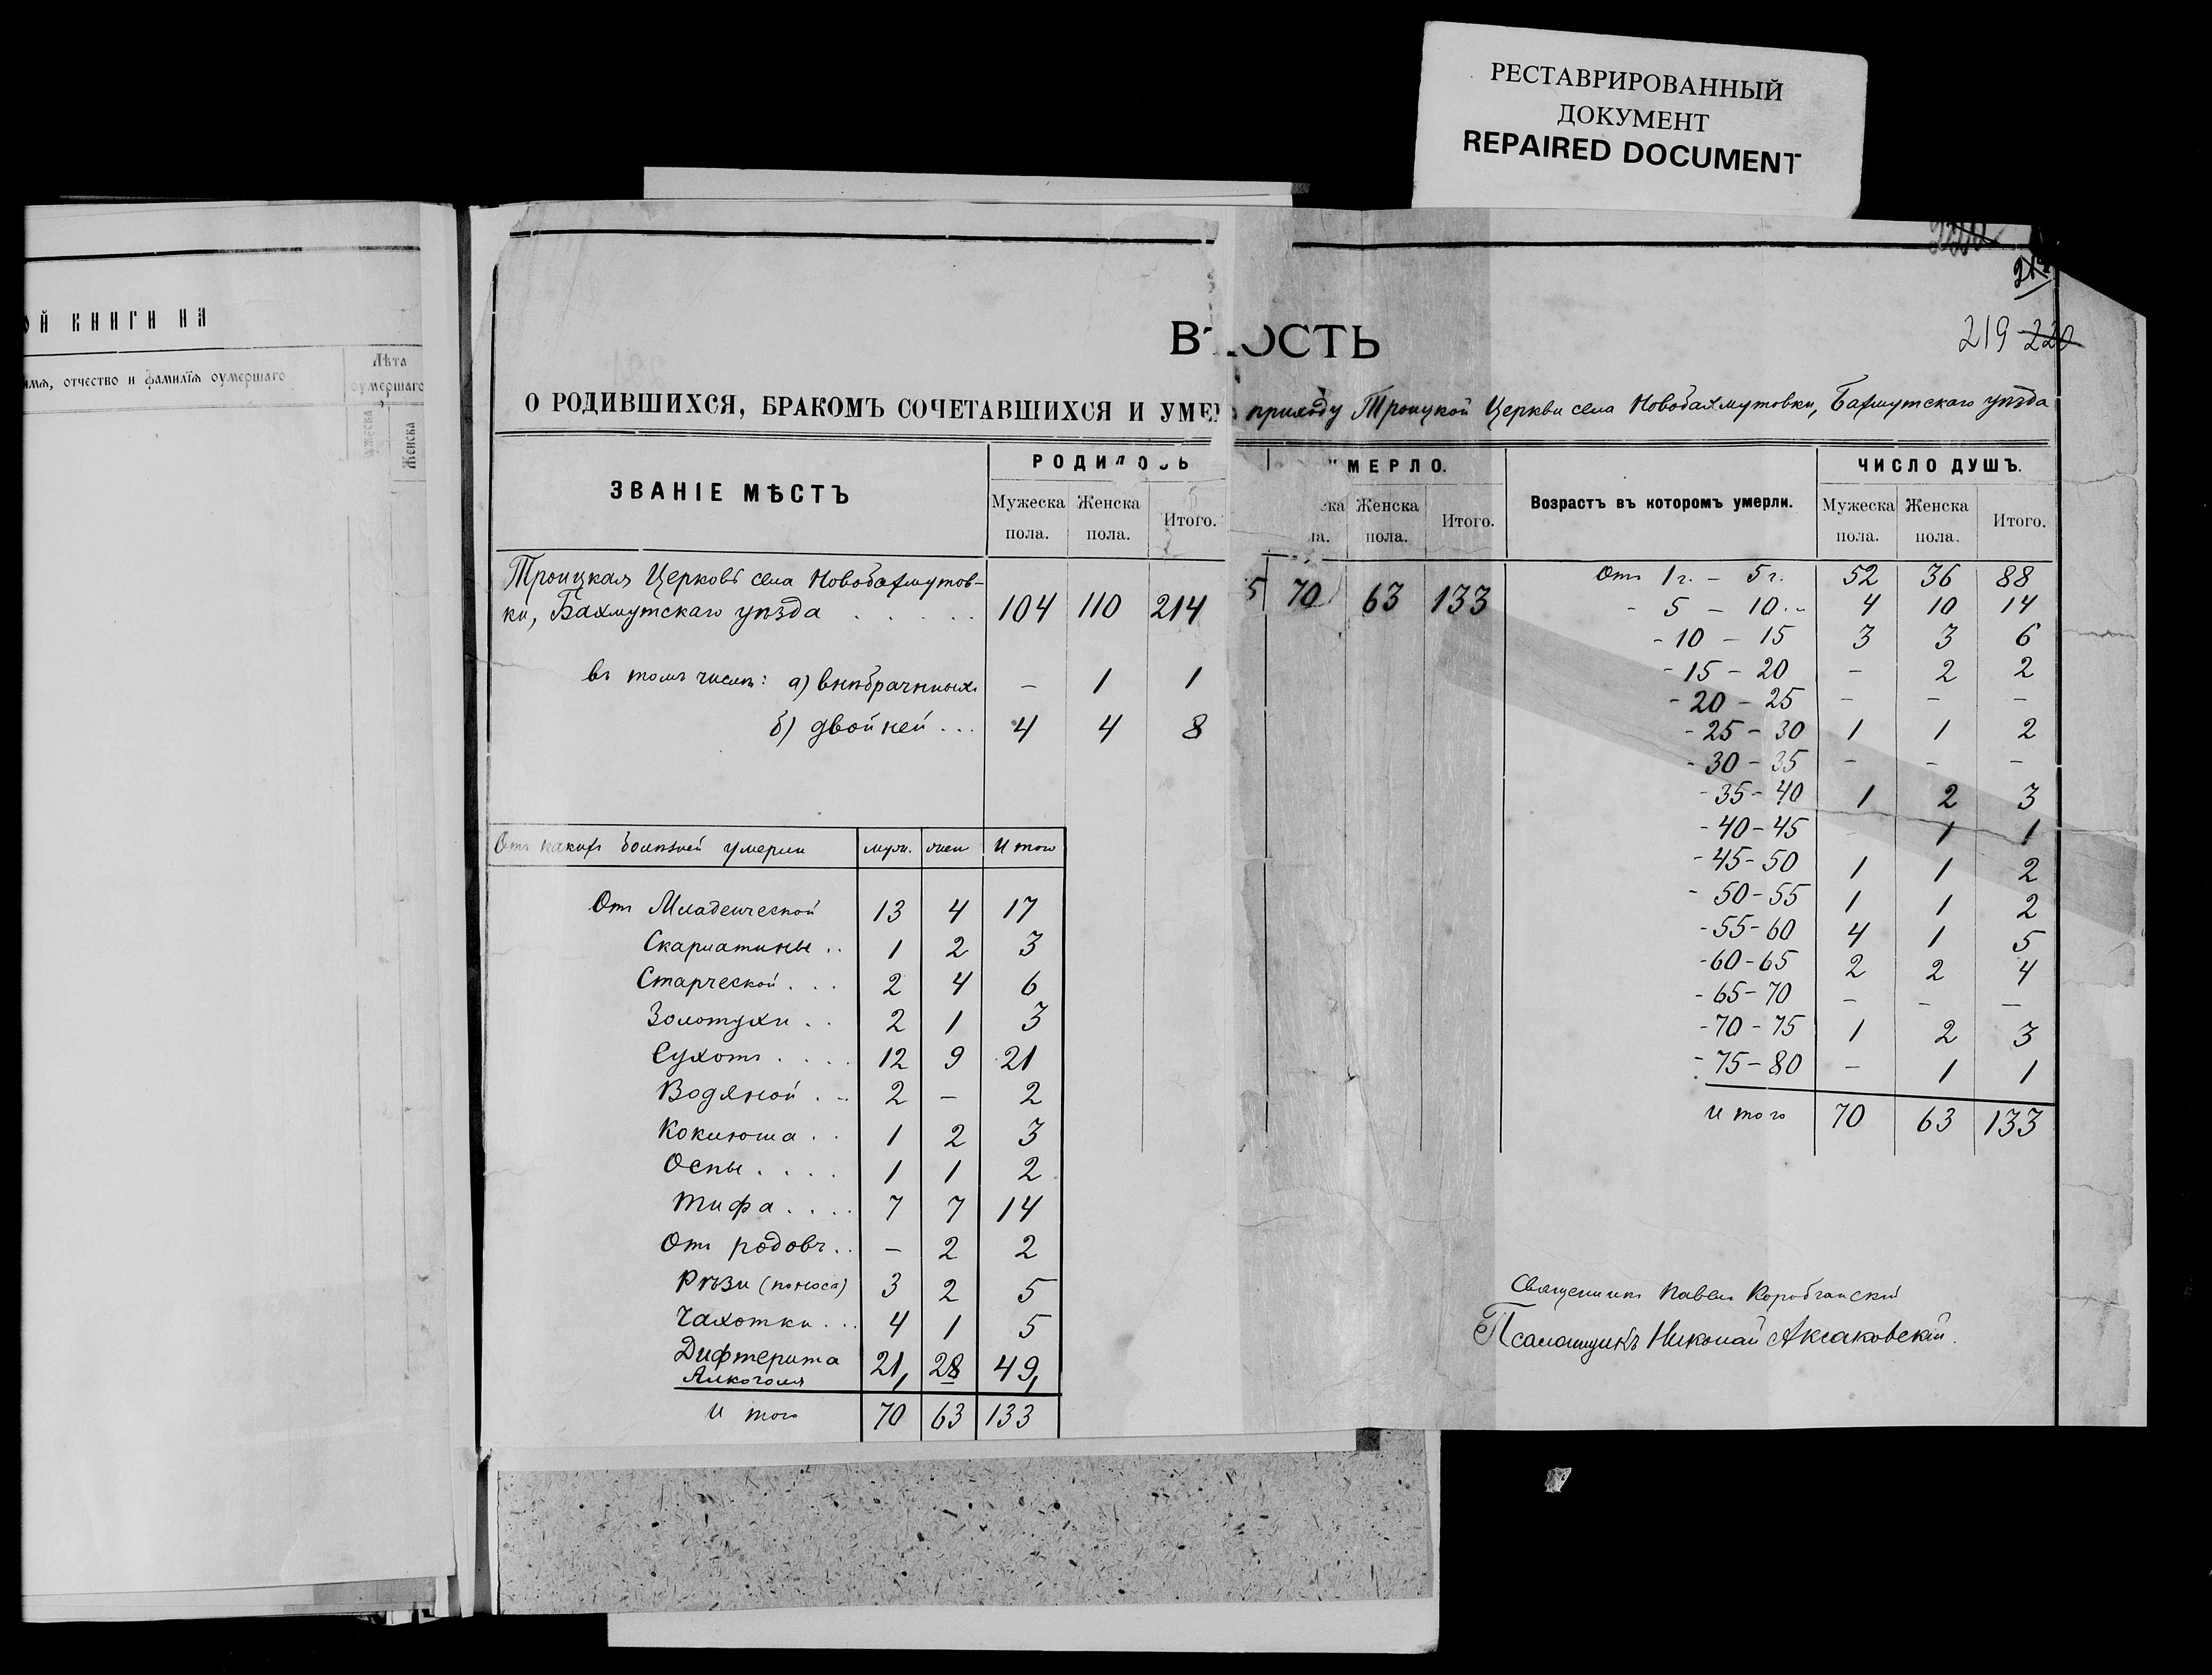 РЕСТАВРИРОВАННЫЙ
ДОКУМЕНТ
REPAIRED DOCUMENT
ОЙ КНИГИ НА
имѧ, отчество и фамилїѧ оумершаго
Лѣта
оумершаго
Мужеска
Женска
219 220
ВѢ ОСТЬ
О РОДИВШИХСЯ, БРАКОМЪ СОЧЕТАВШИХСЯ И УМЕР приходу Троицкой Церкви села Новобахмутовки, Бахмутскаго уѣзда
ЗВАНІЕ МѢСТЪ
РОДИЛОСЬ
Мужеска пола.
Женска пола.
Итого.
МЕРЛО.
ка ла.
Женска пола.
Итого.
Возрастъ въ которомъ умерли.
ЧИСЛО ДУШЪ.
Мужеска пола.
Женска пола.
Итого.
Троицкая Церковь села Новобахмутов-
ки, Бахмутскаго уѣзда . . . . . 104 110 214 5 70 63 133
въ томъ числѣ: а) внѣбрачныхъ – 1 1
б) двойней ... 4 4 8
Отъ 1 г. – 5 г. 52 36 88
- 5 – 10 .. 4 10 14
- 10 – 15 3 3 6
- 15 – 20 – 2 2
- 20 – 25 – – –
- 25 – 30 1 1 2
- 30 – 35 – – –
- 35 – 40 1 2 3
- 40 – 45 – 1 1
- 45 – 50 1 1 2
- 50 – 55 1 1 2
- 55 – 60 4 1 5
- 60 – 65 2 2 4
- 65 – 70 – – –
- 70 – 75 1 2 3
- 75 – 80 – 1 1
Итого 70 63 133
Отъ какихъ болѣзней умерли муж. жен Итого
Отъ Младенческой 13 4 17
Скарлатины .. 1 2 3
Старческой ... 2 4 6
Золотухи .. 2 1 3
Сухотъ .... 12 9 21
Водяной .. 2 – 2
Коклюша .. 1 2 3
Оспы .... 1 1 2
Тифа .... 7 7 14
Отъ родовъ .. – 2 2
Рѣзи (поноса) 3 2 5
Чахотки ... 4 1 5
Дифтерита 21 28 49
Алкоголя 1 – 1
Итого 70 63 133
Священникъ Павелъ
Псаломщикъ Николай Аксаковскій.